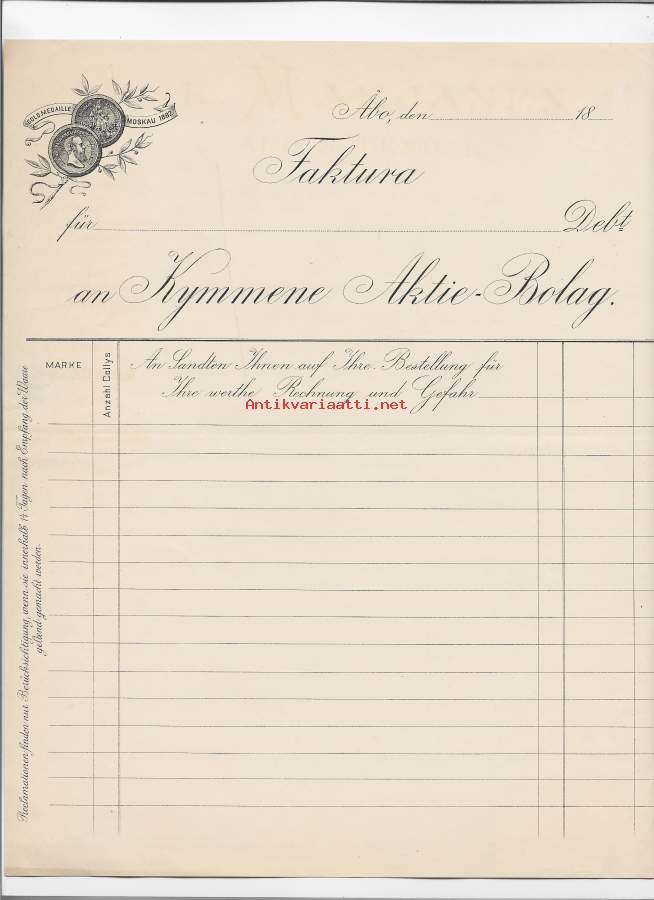 GOLD.MEDAILLE MOSKAU 1882
Åbo, den 18
Faktura
für Debt
an Kymmene Aktie-Bolag.
MARKE
Anzahl Collys
An Sandten Ihnen auf Ihre Bestellung für
Ihre werthe Rechnung und Gefahr
Antikvariaatti.net
Reclamationen finden nur Berücksichtigung, wenn sie innerhalb 14 Tagen nach Empfang der Waare
geltend gemacht werden.